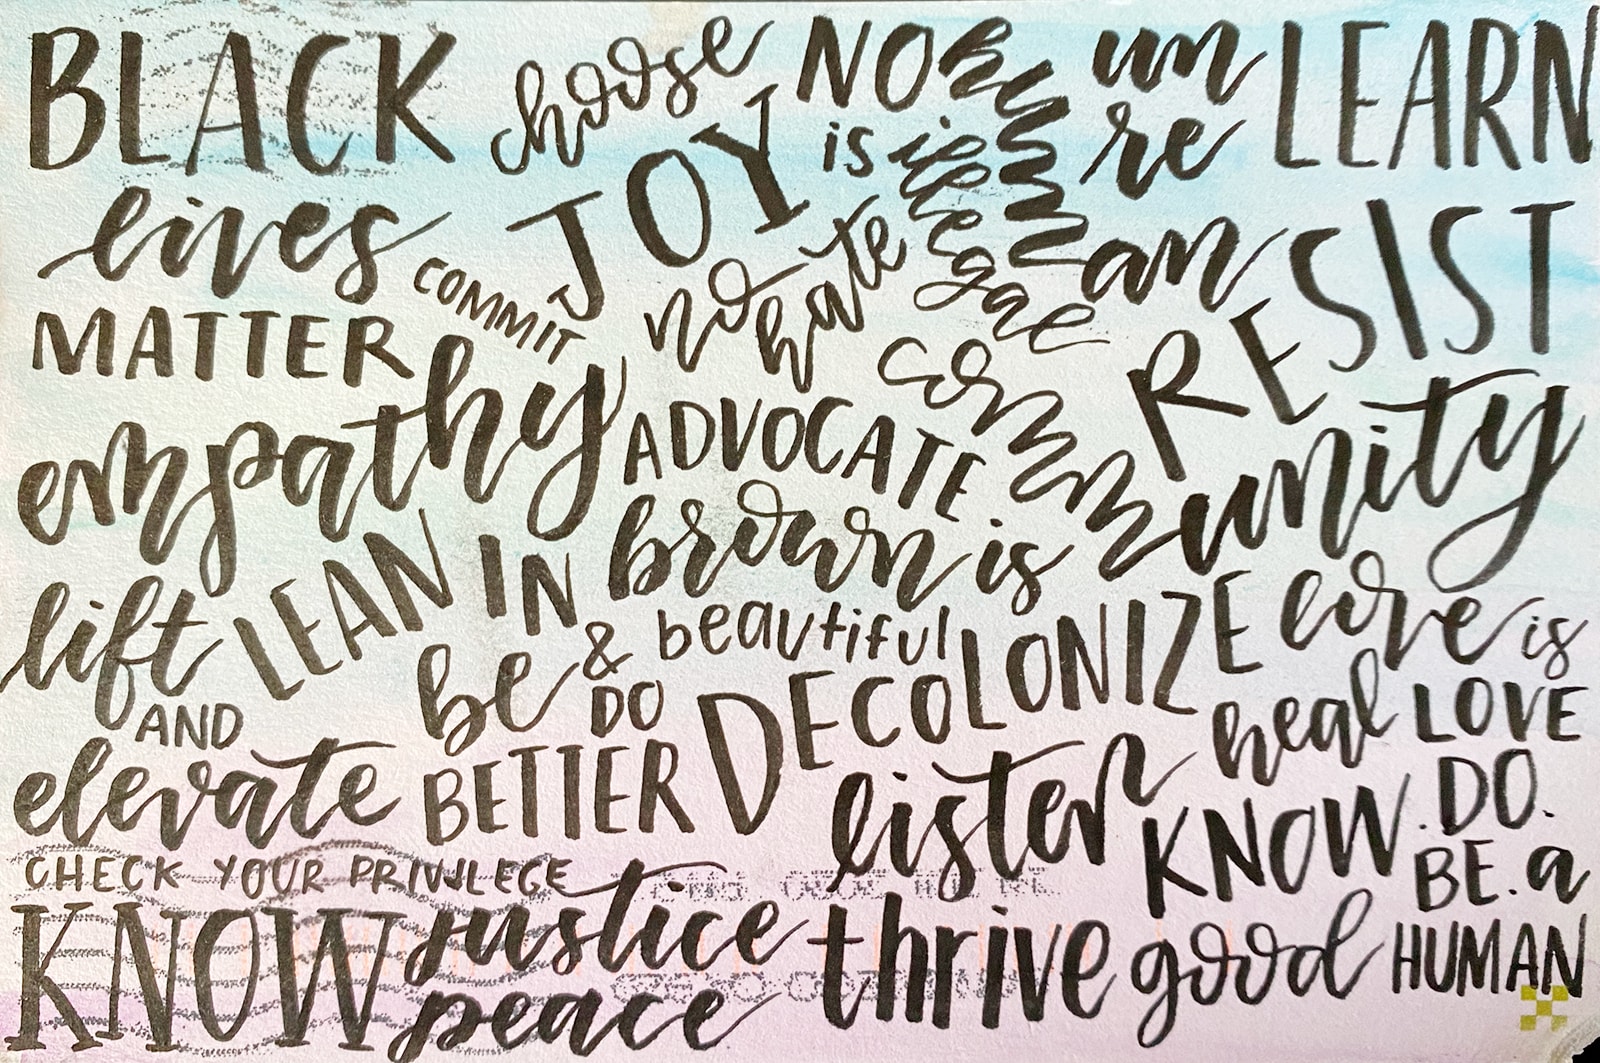 BLACK
lives
MATTER
choose
JOY
NO human
is illegal
un
re LEARN
COMMIT
no hate
RESIST
empathy
ADVOCATE
community
lift
AND
elevate
LEAN IN
brown is
beautiful
be & DO
BETTER
DECOLONIZE
love is
LOVE
heal
listen
KNOW.DO.
BE. a
good HUMAN
CHECK YOUR PRIVILEGE
KNOW justice
KNOW peace
thrive